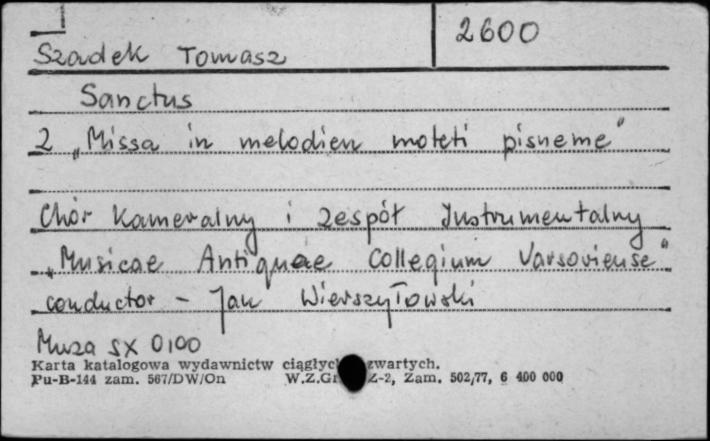 Szadek Tomasz
2600
Sanctus
2 „Missa in melodien moteti pisneme"
Chór Kameralny i Zespół Instrumentalny
„Musicae Antiquae Collegium Varsoviense"
conductor - Jan Wierszyłowski
Muza SX 0100
Karta katalogowa wydawnictw zwartych.
Pu-B-144 zam. 567/DW/On W.Z.Gr Z-2, Zam. 502/77, 6 400 000